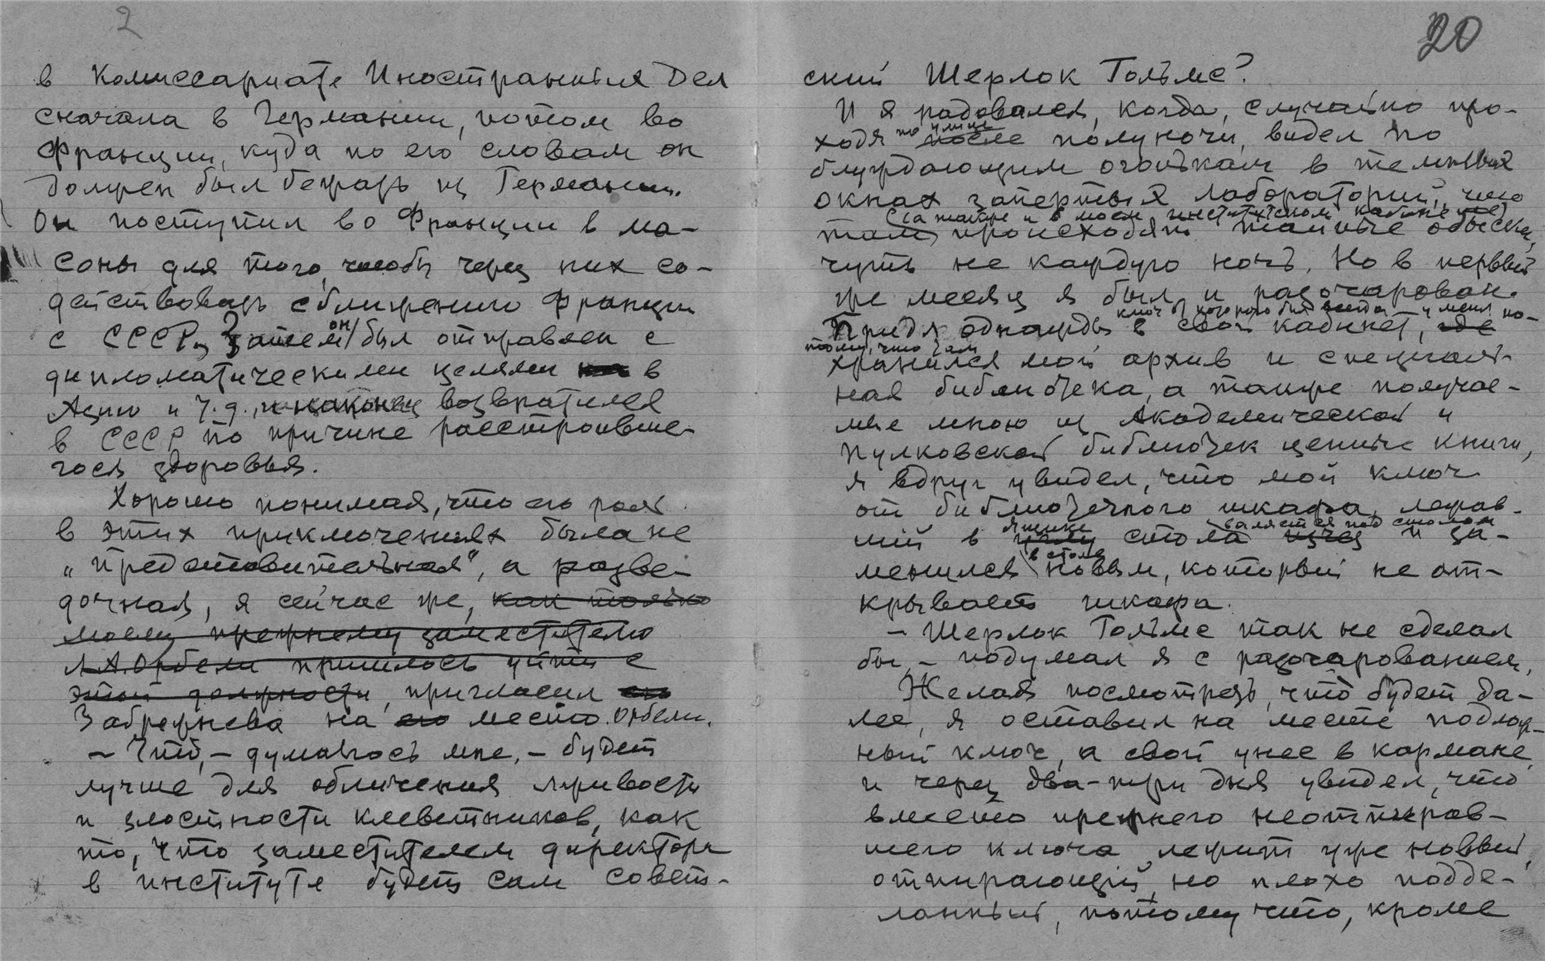 2
в Комиссариате Иностранных Дел
сначала в Германии, потом во
Франции, куда по его словам он
должен был бежать из Германии.
Он поступил во Франции в ма-
соны для того, чтобы через них со-
действовать сближению Франции
с СССР, Затем он был отправлен с
дипломатическими целями в
Азию и т.д., и наконец возвратился
в СССР по причине расстроивше-
гося здоровья.
Хорошо понимая, что его роль
в этих приключениях была не
„представительная“, а разве-
дочная, я сейчас же, как только
моему прежнему заместителю
Л.А. Орбели пришлось уйти с
этой должности, пригласил
Забрежнева на его место Орбели.
– Что, – думалось мне, – будет
лучше для обличения лживости
и злостности клеветников, как
то, что заместителем директора
в институте будет сам совет-
20
ский Шерлок Гольмс?
И я радовался, когда, случайно про-
ходя по улице после полуночи, видел по
блуждающим огонькам в темных
окнах запертых лабораторий, что
(а также и в моем институтском кабинете)
там происходят тайные обыски
чуть не каждую ночь. Но в первый
же месяц я был и разочарован.
ключ от которого был всегда у меня по-
Придя однажды в свой кабинет, где
тому, что там
хранился мой архив и специаль-
ная библиотека, а также получае-
мые мною из Академической и
Пулковской библиотек ценные книги,
я вдруг увидел, что мой ключ
от библиотечного шкафа, лежав-
ший в ящике стола валяется под столом и за-
менился в столе новым, который не от-
крывает шкафа.
– Шерлок Гольмс так не сделал
бы, – подумал я с разочарованием.
Желая посмотреть, что будет да-
лее, я оставил на месте подлож-
ный ключ, а свой унес в кармане
и через два-три дня увидел, что
вместо прежнего неотпирав-
шего ключа лежит уже новый,
отпирающий, но плохо подде-
ланный, потому что, кроме